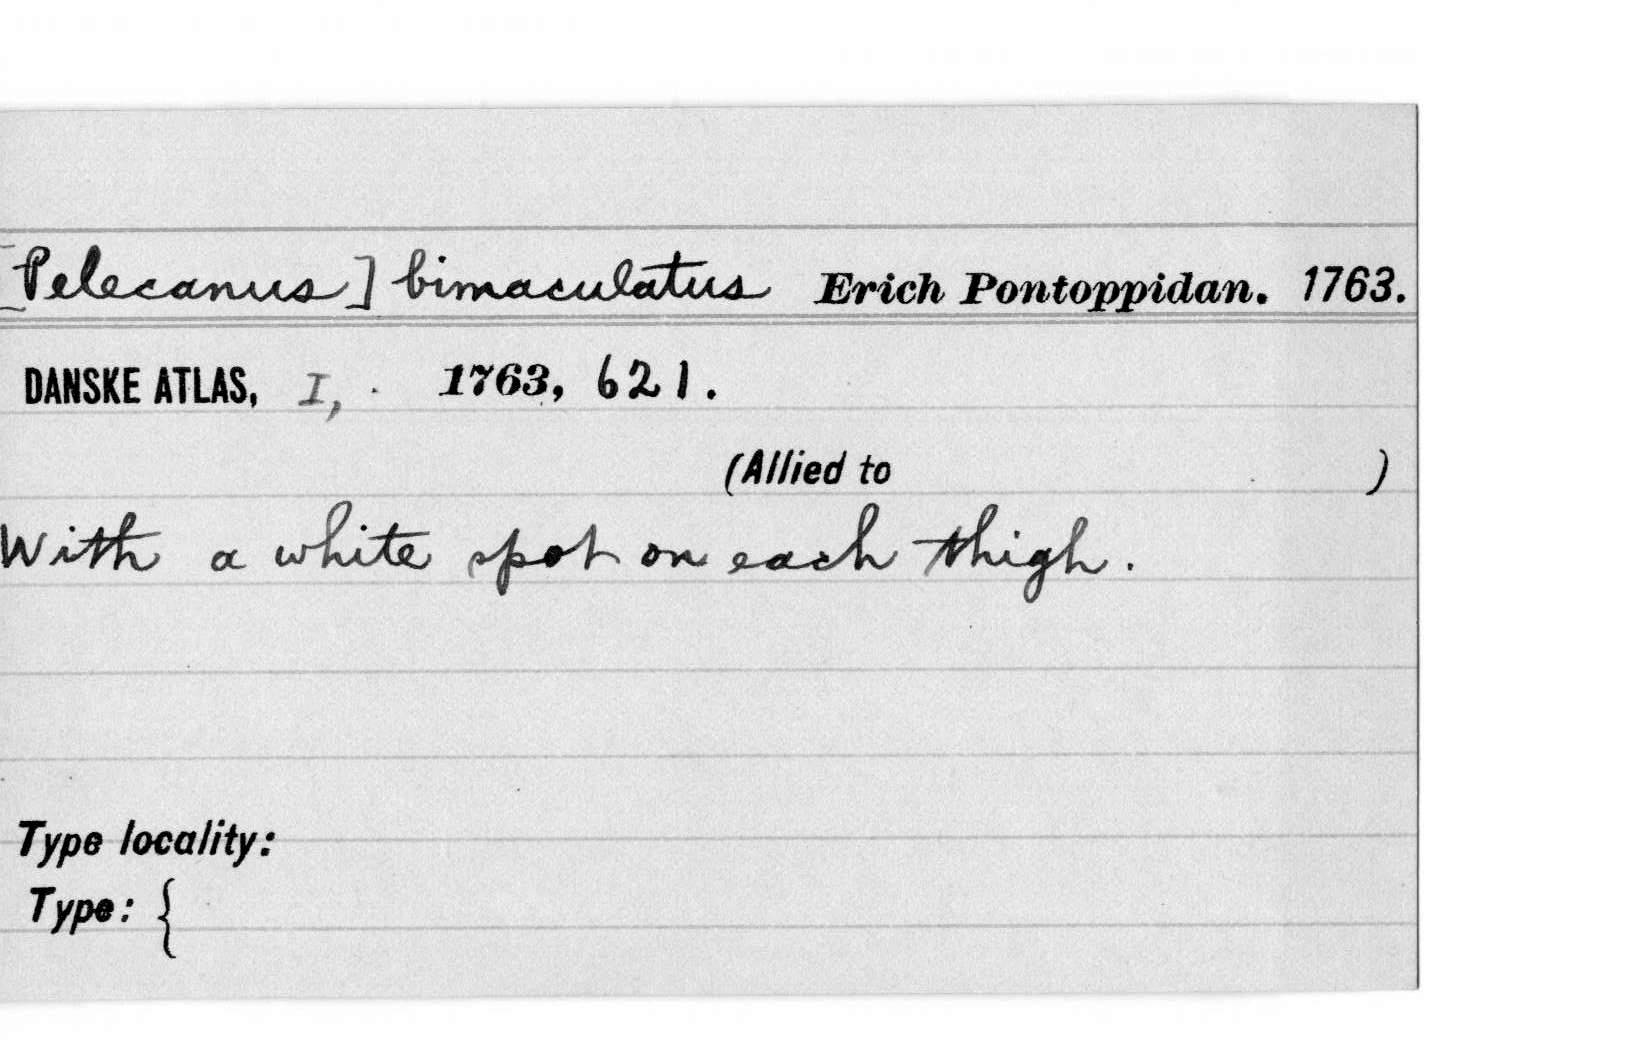 [Pelecanus] bimaculatus Erich Pontoppidan. 1763.
DANSKE ATLAS, I, 1763, 621.
(Allied to )
With a white spot on each thigh.
Type locality:
Type: {